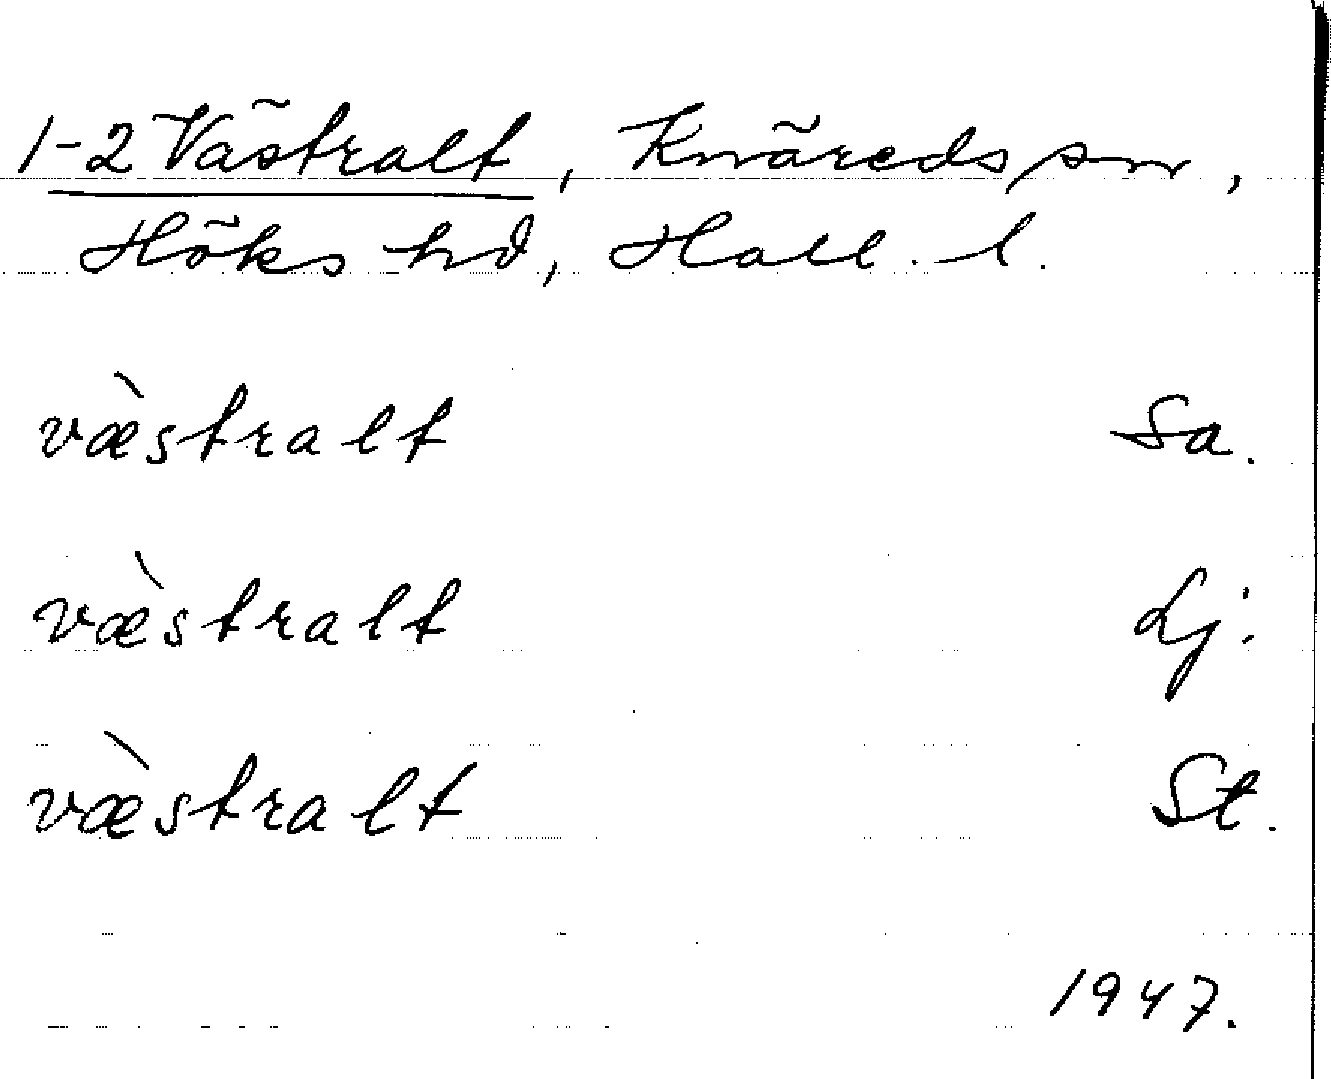 1-2 Västralt, Knäreds sn,
Höks hd, Hall. l.
væ̀stralt Sa.
væ̀stralt Lj.
væ̀stralt St.
1947.